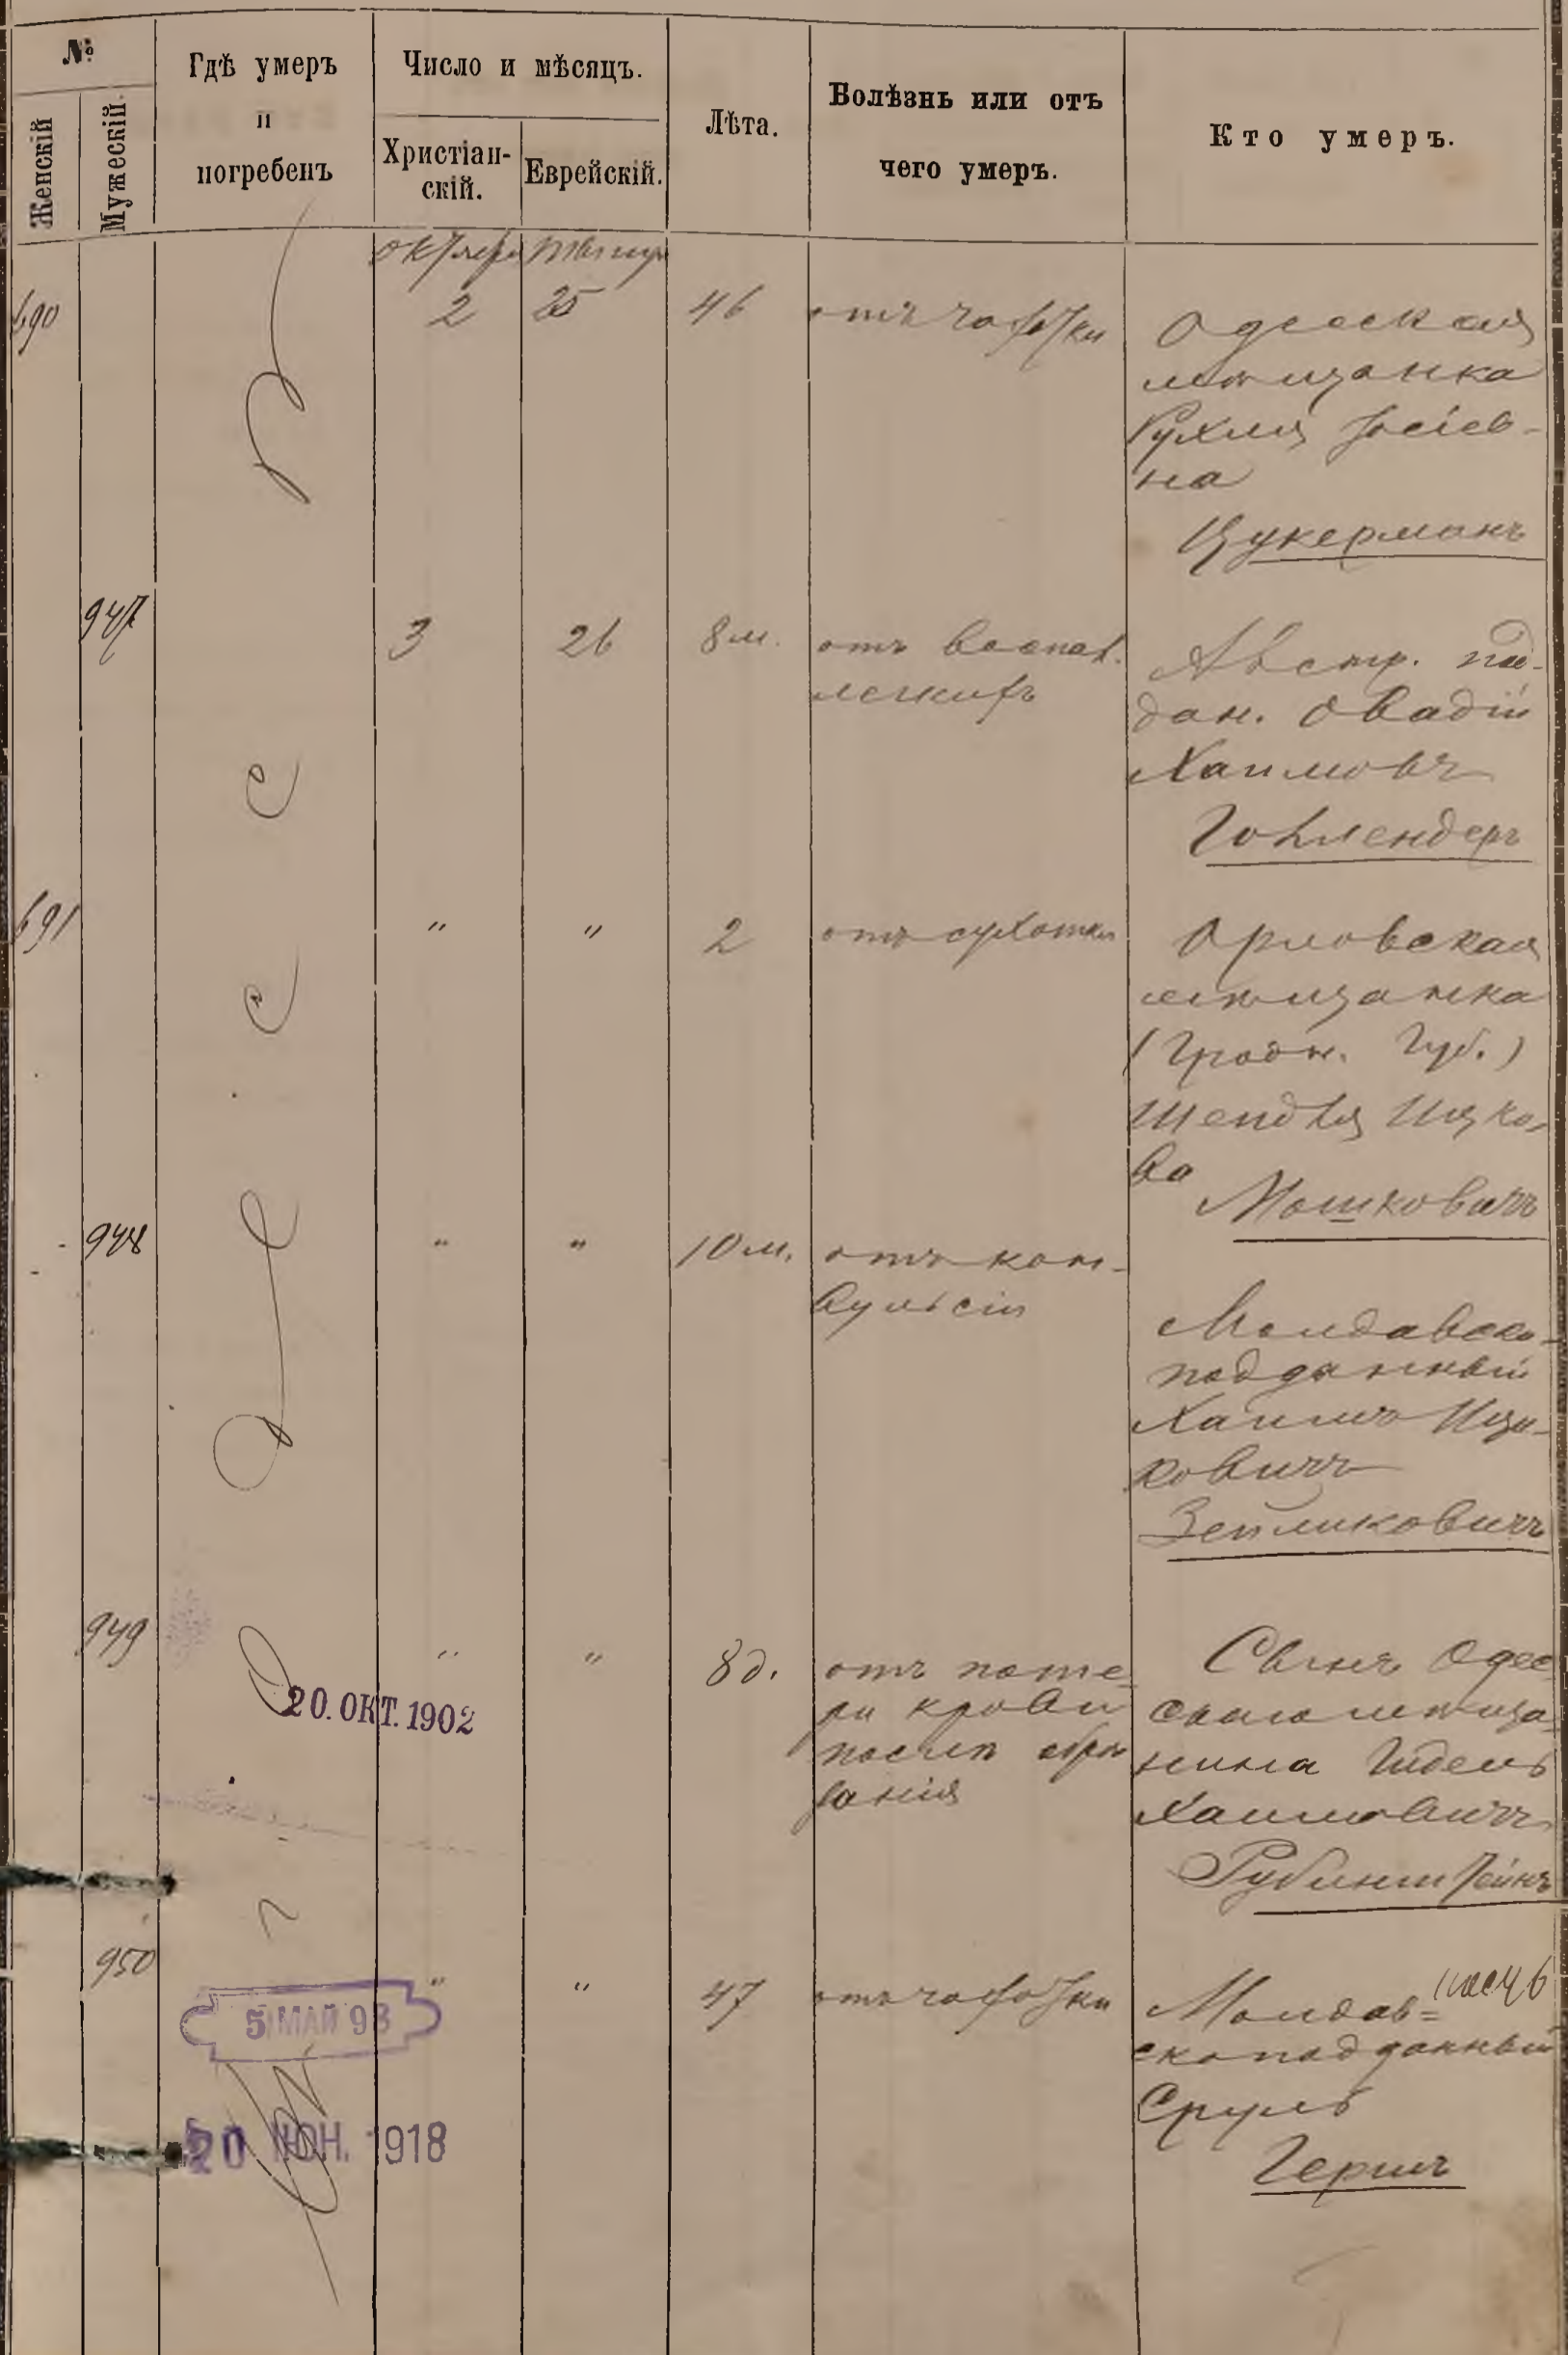 №
Женскій
Мужескій.
Гдѣ умеръ
и
погребенъ
Число и мѣсяцъ.
Христіан-
скій.
Еврейскій.
Лѣта.
Болѣзнь или отъ
чего умеръ.
Кто умеръ.
Октября
690
2
25
46
отъ чахотки
Одесская
мѣщанка
Рухля Іосіев-
на
Цукерманъ
947
3
26
8 м.
отъ воспал.
легкихъ
Австр. под-
дан. Овадій
Хаимовъ
691
"
"
2
отъ сухотки
Орловская
мѣщанка
(Гродн. Губ.)
Ицко-
ва
Мошковичъ
948
"
"
10 м.
отъ кон-
вульсіи
Молдавско-
подданный
Хаимъ Ица-
ковичъ
Зейликовичъ
Одесса
949
"
"
8 д.
отъ поте-
ри крови
послѣ обрѣ
занія
Сынъ Одес-
скаго мѣща-
нина Гидель
Хаимовичъ
Рубинштейнъ
20. ОКТ. 1902
950
"
"
47
отъ чахотки
Молдав=
скоподданный
Сруль
Гершъ
5 МАЙ 98
20 ІЮН. 1918